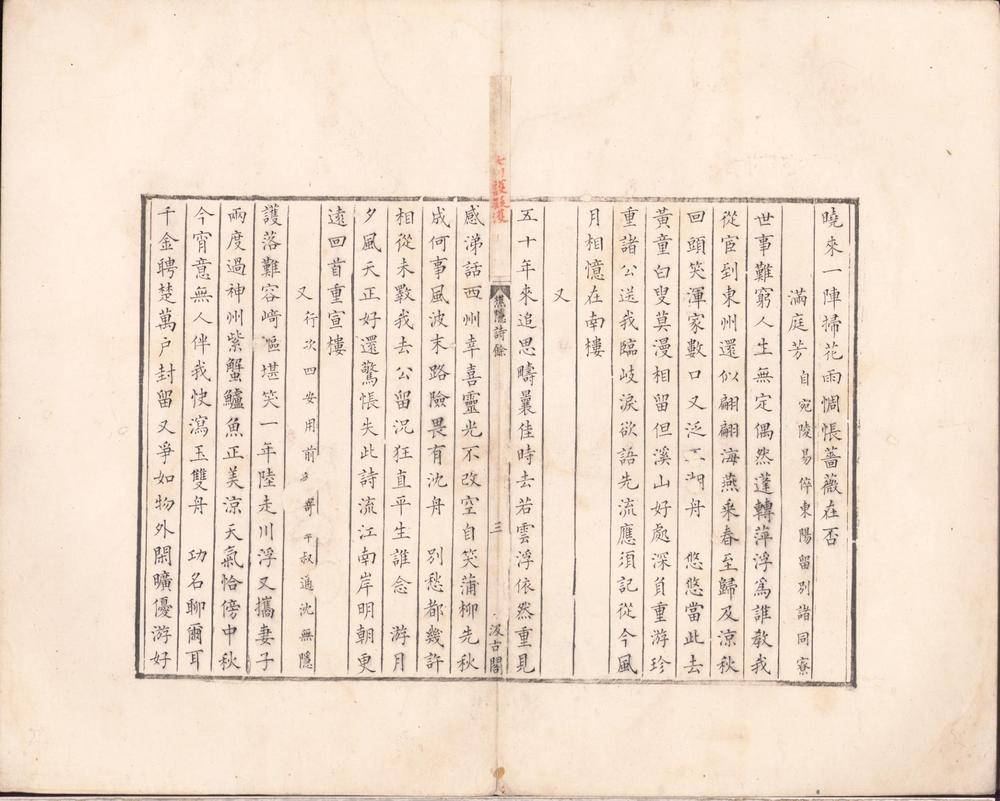 曉來一陣掃花雨惆悵薔薇在否
滿庭芳 自宛陵易倅東陽留別諸同寮
世事難窮人生無定偶然蓬轉萍浮爲誰教我
從宦到東州還似翩翩海燕乘春至歸及涼秋
回頭笑渾家數口又泛五湖舟 悠悠當此去
黃童白叟莫漫相留但溪山好處深負重游珍
重諸公送我臨岐淚欲語先流應須記從今風
月相憶在南樓
又
五十年來追思疇曩佳時去若雲浮依然重見
感涕話西州幸喜靈光不改空自笑蒲柳先秋
成何事風波末路險畏有沈舟 別愁都幾許
相從未斁我去公留況狂直平生誰念 游月
夕風天正好還驚悵失此詩流江南岸明朝更
遠回首重宣樓
樵隱詩餘
三
汲古閣
又 行次四安用前 寄 平叔通沈無隱
護落難容﨑嶇堪笑一年陸走川浮又攜妻子
兩度過神州紫蟹鱸魚正美涼天氣恰傍中秋
今宵意無人伴我快瀉玉雙舟 功名聊爾耳
千金聘楚萬户封留又爭如物外閑曠優游好